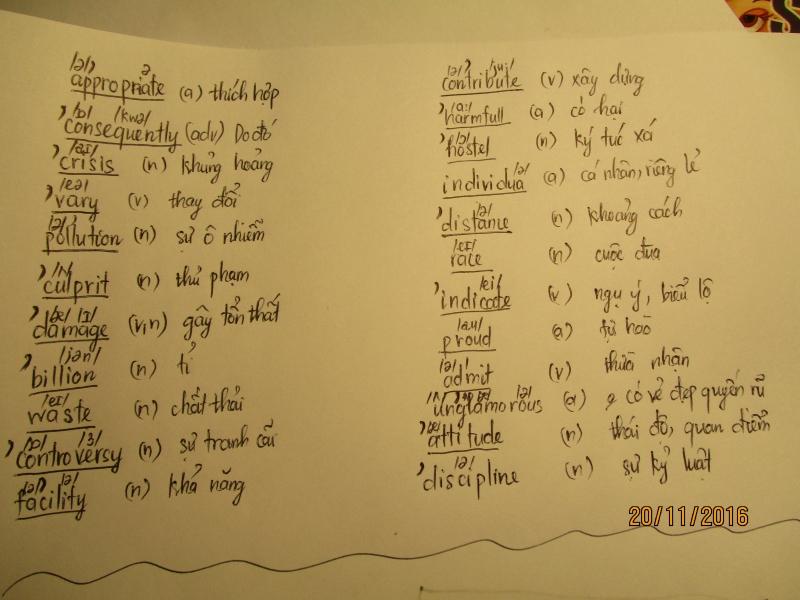 /ə/ ə
appropriate (a) thích hợp
/ɒ/ /kwə/
'consequently (adv) Do đó
/aɪ/
'crisis (n) khủng hoảng
/eə/
'vary (v) thay đổi
/ə/
pollution (n) sự ô nhiễm
/ʌ/
'culprit (n) thủ phạm
/æ/ /ɪ/
'damage (v,n) gây tổn thất
/jən/
'billion (n) tỉ
/eɪ/
waste (n) chất thải
/ɒ/ /ɜ/
'controversy (n) sự tranh cãi
/ə/ /ə/
facility (n) khả năng
/ə/ /ju/
contribute (v) xây dựng
/a:/
'harmfull (a) có hại
/ə/
'hostel (n) ký túc xá
/ə/
individua (a) cá nhân, riêng lẻ
/ə/
'distance (n) khoảng cách
/eɪ/
race (n) cuộc đua
/ei/
'indicate (v) ngụ ý, biểu lộ
/au/
proud (a) tự hào
/ə/
admit (v) thừa nhận
/ʌ/ /ə/
unglamorous (a) có vẻ đẹp quyến rũ
/æ/
'attitude (n) thái độ, quan điểm
/ə/
'discipline (n) sự kỷ luật
20/11/2016